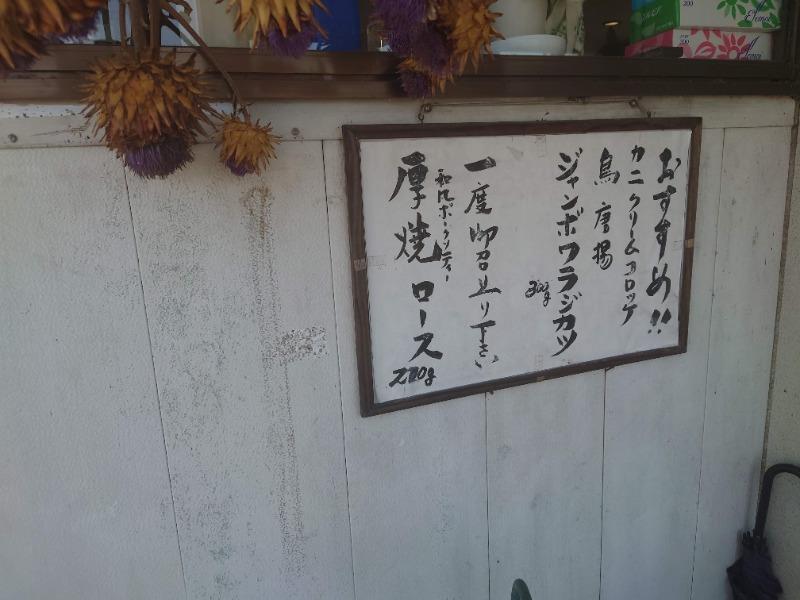 おすすめ!!
カニクリームコロッケ
鳥唐揚
ジャンボワラジカツ
300g
一度御召上り下さい
和風ポークソテー
厚焼ロース
220g